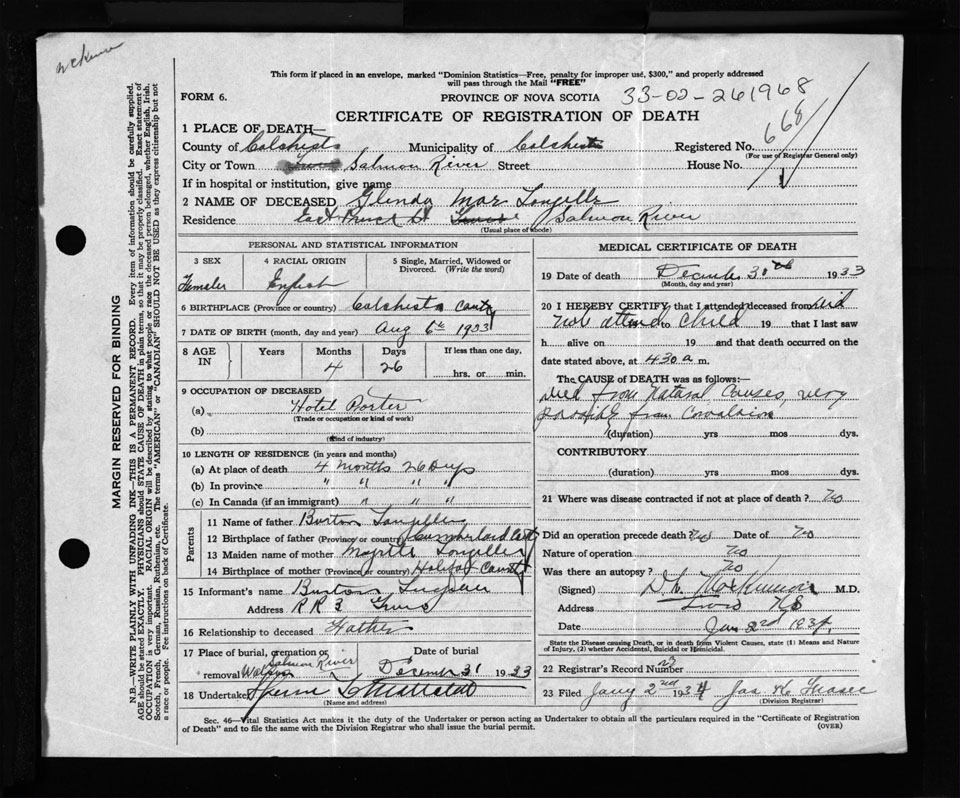 This form if placed in an envelope, marked "Dominion Statistics—Free, penalty for improper use, $300," and properly addressed
will pass through the Mail "FREE"
FORM 6.
PROVINCE OF NOVA SCOTIA
33-02-261968
CERTIFICATE OF REGISTRATION OF DEATH
668
1 PLACE OF DEATH—
County of Colchester Municipality of Colchester Registered No.
(For use of Registrar General only)
City or Town Salmon River Street House No.
If in hospital or institution, give name
2 NAME OF DECEASED Glenda Mae
Residence East Salmon River
(Usual place of abode)
PERSONAL AND STATISTICAL INFORMATION
3 SEX 4 RACIAL ORIGIN 5 Single, Married, Widowed or Divorced. (Write the word)
Female English
6 BIRTHPLACE (Province or country) Colchester County
7 DATE OF BIRTH (month, day and year) Aug 6th 1933
8 AGE IN Years Months Days If less than one day,
4 26 hrs. or min.
9 OCCUPATION OF DECEASED
(a) Hotel Porter
(Trade or occupation or kind of work)
(b)
(Kind of industry)
10 LENGTH OF RESIDENCE (in years and months)
(a) At place of death 4 months 26 Days
(b) In province " " " "
(c) In Canada (if an immigrant) " " "
Parents
11 Name of father Burton
12 Birthplace of father (Province or country) Cumberland Cty
13 Maiden name of mother
14 Birthplace of mother (Province or country) Halifax County
15 Informant's name Burton
Address R R 3 Truro
16 Relationship to deceased Father
17 Place of burial, cremation or removal Salmon River
Date of burial December 31 1933
18 Undertaker
(Name and address)
MEDICAL CERTIFICATE OF DEATH
19 Date of death December 31st 1933
(Month, day and year)
20 I HEREBY CERTIFY that I attended deceased from did
not attend to child 19 that I last saw
h alive on 19 and that death occurred on the
date stated above, at 4 30 a m.
The CAUSE OF DEATH was as follows:—
Died from Natural Causes, very
possibly from
(duration) yrs mos dys.
CONTRIBUTORY
(duration) yrs mos dys.
21 Where was disease contracted if not at place of death? no
Did an operation precede death? no Date of no
Nature of operation no
Was there an autopsy? no
(Signed) M.D.
Address Truro N S
Date Jan 2nd 1934
State the Disease causing Death, or in death from Violent Causes, state (1) Means and Nature
of Injury, (2) whether Accidental, Suicidal or Homicidal.
22 Registrar's Record Number
23 Filed Jany 2nd 1934 Jas H Fraser
(Division Registrar)
Sec. 46—Vital Statistics Act makes it the duty of the Undertaker or person acting as Undertaker to obtain all the particulars required in the "Certificate of Registration
of Death" and to file the same with the Division Registrar who shall issue the burial permit.
(OVER)
MARGIN RESERVED FOR BINDING
N.B.—WRITE PLAINLY WITH UNFADING INK—THIS IS A PERMANENT RECORD. Every item of information should be carefully supplied.
AGE should be stated EXACTLY. PHYSICIANS should STATE CAUSE OF DEATH in plain terms, so that it may be properly classified. Exact statement of
OCCUPATION is very important. RACIAL ORIGIN will be described by stating to what people or race the deceased person belonged, whether English, Irish,
Scotch, French, German, Russian, Ruthenian, etc. The terms "AMERICAN" or "CANADIAN" SHOULD NOT BE USED as they express citizenship but not
a race or people. Fee instructions on back of Certificate.